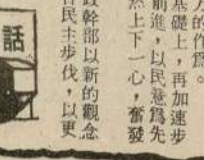 力的作為。
基礎上，再加速步
前進，以民意爲先
然上下一心，奮發
政幹部以新的觀念
民主步伐，以更
話